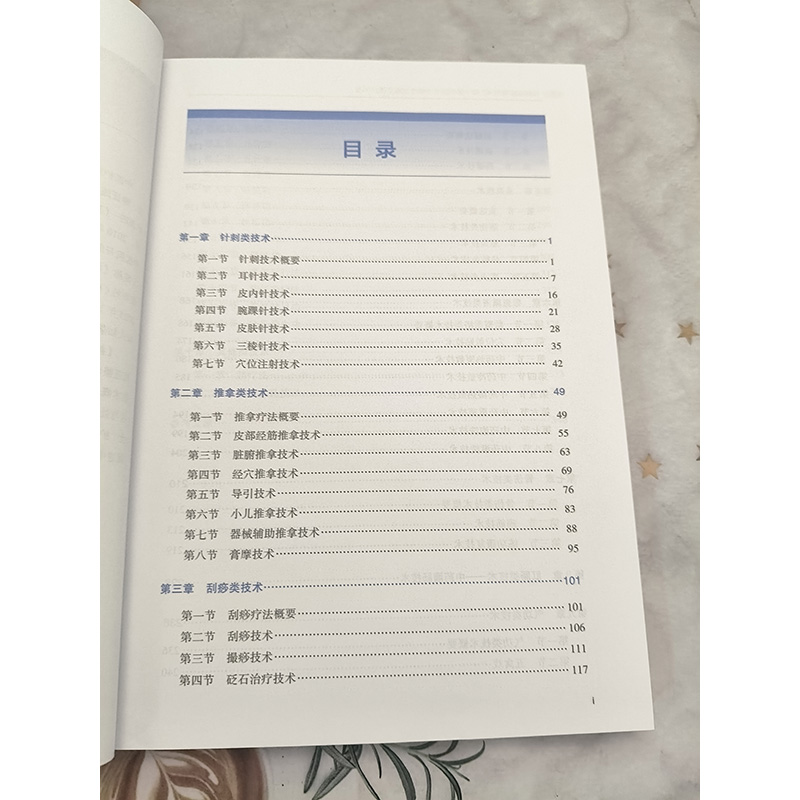 目录
第一章 针刺类技术 1
第一节 针刺技术概要 1
第二节 耳针技术 7
第三节 皮内针技术 16
第四节 腕踝针技术 21
第五节 皮肤针技术 28
第六节 三棱针技术 35
第七节 穴位注射技术 42
第二章 推拿类技术 49
第一节 推拿疗法概要 49
第二节 皮部经筋推拿技术 55
第三节 脏腑推拿技术 63
第四节 经穴推拿技术 69
第五节 导引技术 76
第六节 小儿推拿技术 83
第七节 器械辅助推拿技术 88
第八节 膏摩技术 95
第三章 刮痧类技术 101
第一节 刮痧疗法概要 101
第二节 刮痧技术 106
第三节 撮痧技术 111
第四节 砭石治疗技术 117
i